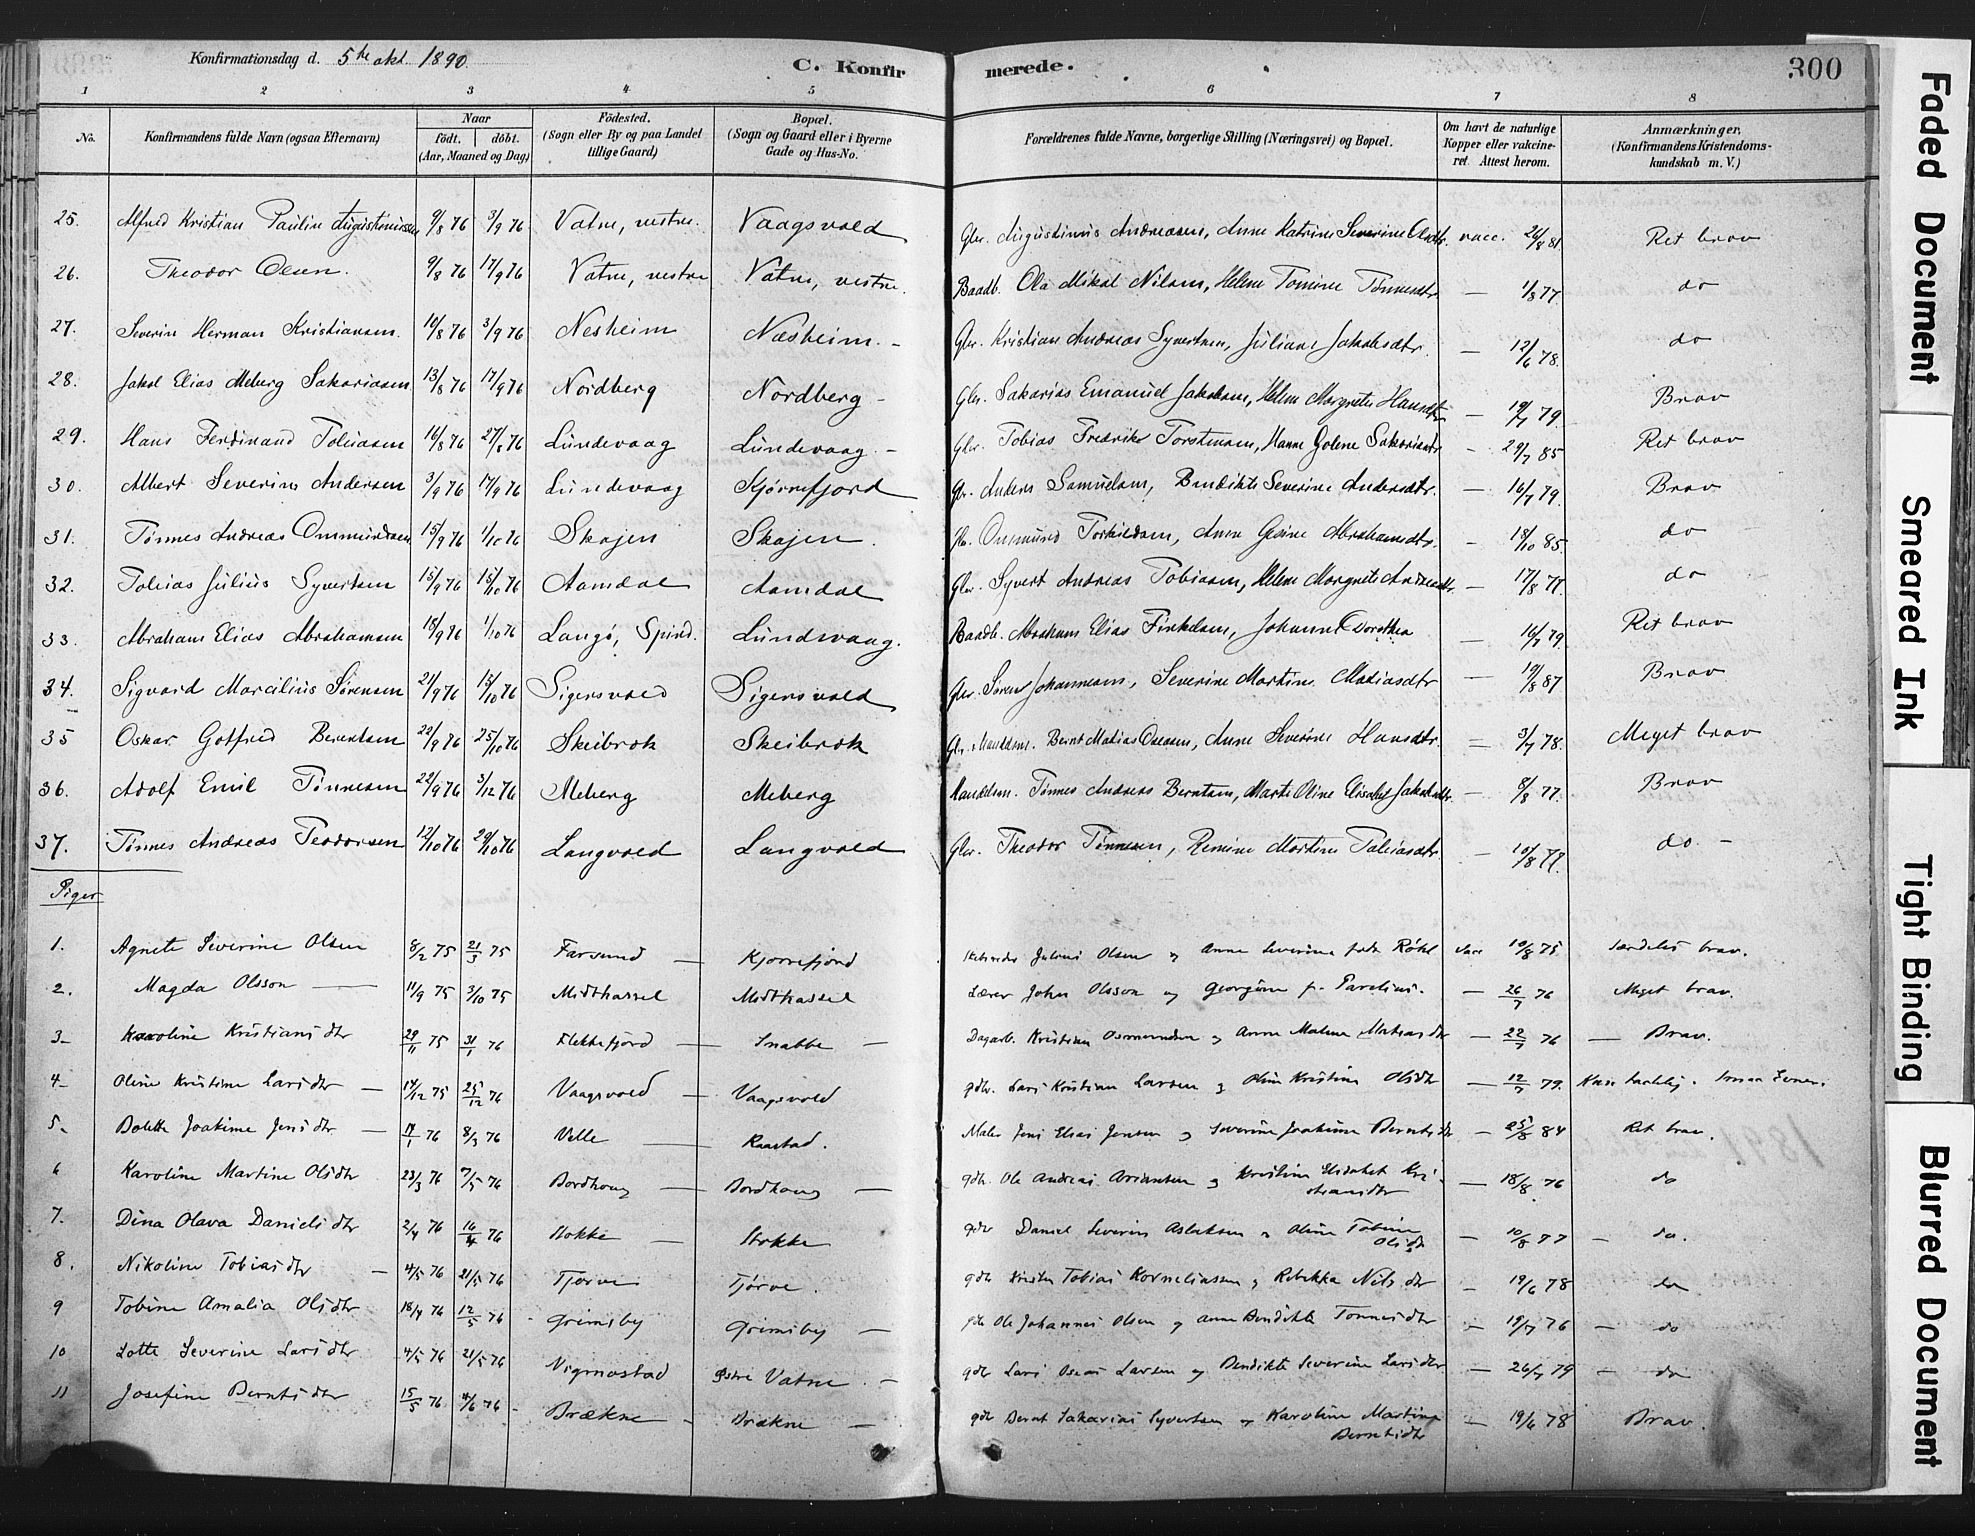 Konfirmationsdag d. 5te okt. 1890.
C. Konfirmerede.
300
1 2 3 4 5 6 7 8
No. Konfirmandens fulde Navn (ogsaa Efternavn) Naar født. døbt. (Aar, Maaned og Dag) Fødested. (Sogn eller By og paa Landet tillige Gaard) Bopæl. (Sogn og Gaard eller i Byerne Gade og Hus-No. Forældrenes fulde Navne, borgerlige Stilling (Næringsvei) og Bopæl. Om havt de naturlige Kopper eller vakcineret. Attest herom. Anmærkninger, (Konfirmandens Kristendomskundskab m. V.)
25. Alfred Kristian Paulin Augustinussen 9/8 76 3/9 76 Vatne, vestre. Vaagsvold Gbr. Augustinus Andreasen, Anne Katrine Severine Olsdtr. vacc. 26/8 81 Ret brav
26. Theodor Olsen. 9/8 76 17/9 76 Vatne, vestre Vatne, vestre. Baadb. Ola Mikal Nilsen, Helene Tomine Tønnesdtr. — 1/8 77. do
27. Severin Herman Kristiansen. 10/8 76 3/9 76 Nesheim Næsheim. – Gbr. Kristian Andreas Syvertsen, Juliane Jakobsdtr. — 12/6 78. do
28. Jakob Elias Meberg Sakariasen 13/8 76 17/9 76 Nordberg Nordberg – Gbr. Sakarias Emanuel Jakobsen, Helene Margrete Hansdtr — 19/7 79. Brav
29. Hans Ferdinand Tobiasen 16/8 76 27/8 76 Lundevaag Lundevaag. – Gbr. Tobias Fredrik Torstensen, Hanne Golene Sakariasdtr – 29/7 85 Ret brav
30. Albert Severin Andersen 3/9 76 17/9 76 Lundevaag Kjørrefjord Gbr. Anders Samuelsen, Bendikte Severine Andersdtr. — 16/7 79. Brav
31. Tønnes Andreas Ommundsen 15/9 76 1/10 76 Skajen Skajen. Gb. Ommund Torkildsen, Anne Gesine Abrahamsdtr. – 18/10 85. do
32. Tobias Julius Syvertsen 15/9 76 15/10 76 Aamdal Aamdal Gbr. Syvert Andreas Tobiasen, Helene Margrete Andreasdtr. — 17/8 77. do
33. Abraham Elias Abrahamsen 18/9 76 1/10 76 Langø, Spind. Lundevaag. Baadb. Abraham Elias Finkelsen, Johanne Dorothea — 16/7 79 Ret brav
34. Sigvard Marcilius Sørensen 21/9 76 15/10 76 Sigersvold Sigersvold Gbr. Søren Johannesen, Severine Martine Matiasdtr — 19/8 87 Brav
35 Oskar Gotfred Berentsen 22/9 76 25/10 76 Skeibrok Skeibrok Gbr. & Handelsm. Bernt Matias Osesen, Anne Severine Hansdtr. — 3/7 78. Meget brav
36. Adolf Emil Tønnesen 22/9 76 3/12 76 Meberg Meberg Handelsm. Tønnes Andreas Berntsen, Marte Oline Elisabet Jakobsdtr. – 8/8 77. Brav
37. Tønnes Andreas Teodorsen 12/10 76 29/10 76 Langvold Langvold Gbr. Theodor Tønnesen, Remine Martine Tobiasdtr. — 10/8 77. do. –
Piger
1. Agnete Severine Olsen 8/2 75 21/3 75 Farsund — Kjørrefjord Julius Olsen og Anne Severine født Røkl vacc 10/8 75. særdeles brav.
2. Magda Olsson — 11/9 75 3/10 75 Midthassel Midthassel Lærer John Olsson og Georgine f. — 26/7 76 Meget brav.
3– Karoline Kristiansdtr 29/11 75 31/1 76 Flekkefjord — Snabbe — Dagarb. Kristian Osmundsen og Anne Malene Matiasdtr — 22/7 76 — Brav.
4– Oline Kristine Larsdtr — 14/12 75 25/12 76 Vaagsvold — Vaagsvold gdbr. Lars Kristian Larsen og Oline Kristine Olsdtr — 12/7 79. smaa Evner.
5– Bolette Joakime Jensdtr — 17/1 76 8/3 76 Velle — Raastad. Maler Jens Elias Jensen og Severine Joakime Berntsdtr — 25/8 84 Ret brav.
6 Karoline Martine Olsdtr 23/3 76 7/5 76 Bordhoug — Bordhoug — gdb. Ole Andreas Ariansen og Kristine Elisabet Kristiansdtr — 18/8 76 do
7. Dina Olava Danielsdtr 2/4 76 16/4 76 Stokke — Stokke gdbr Daniel Severin Aslaksen og Oline Tobine Olsdtr — 10/8 77 – do.
8. Nikoline Tobiasdtr — 4/5 76 21/5 76 Tjørve Tjørve. gdb Kristen Tobias Korneliussen og Rebekka Nilsdtr – 19/6 78 do
9 Tobine Amalia Olsdtr 18/4 76 12/5 76 – Grimsby Grimsby — gdb Ole Johannes Olsen og Anne Bendikte Tønnesdtr – 19/7 76 — do
10 Lotte Severine Larsdtr 4/5 76 21/5 76 Vigmostad Østre Vatne. – gdb Lars Oseas Larsen og Bendikte Severine Larsdtr — 26/7 79 – do
11 Josefine Berntsdtr 15/5 76 4/6 76 – Brækne – Brækne — gdb Bernt Sakarias Syvertsen og Karoline Martine Berntsdtr — 19/6 78 Brav.
Faded Document
Smeared Ink
Tight Binding
Blurred Document